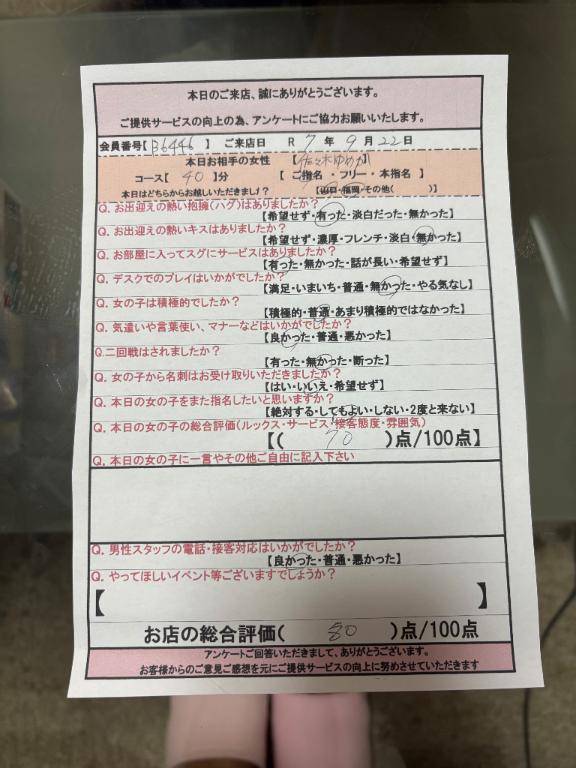 本日のご来店、誠にありがとうございます。
ご提供サービスの向上の為、アンケートにご協力お願いいたします。
会員番号【 B6446 】 ご来店日 R 7 年 9 月 22 日
本日お相手の女性 【佐々木ゆめか】
コース【 40 】分 【 ご指名 ・ フリー ・ 本指名 】
本日はどちらからお越しいただきました？ 【山口・福岡・その他( )】
Q. お出迎えの熱い抱擁(ハグ)はありましたか？
【希望せず・有った・淡白だった・無かった】
Q. お出迎えの熱いキスはありましたか？
【希望せず・濃厚・フレンチ・淡白・無かった】
Q. お部屋に入ってスグにサービスはありましたか？
【有った・無かった・話が長い・希望せず】
Q. デスクでのプレイはいかがでしたか？
【満足・いまいち・普通・無かった・やる気なし】
Q. 女の子は積極的でしたか？
【積極的・普通・あまり積極的ではなかった】
Q. 気遣いや言葉使い、マナーなどはいかがでしたか？
【良かった・普通・悪かった】
Q.二回戦はされましたか？
【有った・無かった・断った】
Q. 女の子から名刺はお受け取りいただきましたか？
【はい・いいえ・希望せず】
Q. 本日の女の子をまた指名したいと思いますか？
【絶対する・してもよい・しない・2度と来ない】
Q. 本日の女の子の総合評価(ルックス・サービス・接客態度・雰囲気)
【( 70 )点/100点】
Q. 本日の女の子に一言やその他ご自由に記入下さい
Q. 男性スタッフの電話・接客対応はいかがでしたか？
【良かった・普通・悪かった】
Q. やってほしいイベント等ございますでしょうか？
【 】
お店の総合評価( 80 )点/100点
アンケートご回答いただきまして、ありがとうございます。
お客様からのご意見ご感想を元にご提供サービスの向上に努めさせていただきます